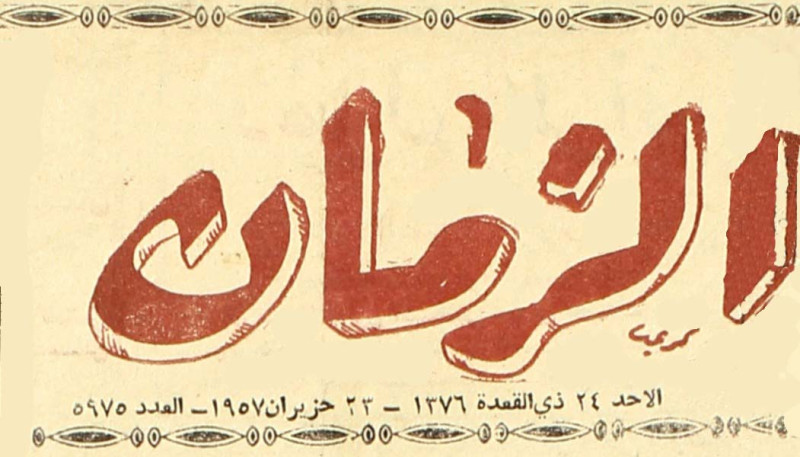 الزمان
الاحد ٢٤ ذي القعدة ١٣٧٦ – ٢٣ حزيران ١٩٥٧ – العدد ٥٩٧٥